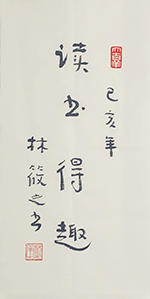 己亥年
读书得趣
林筱之书